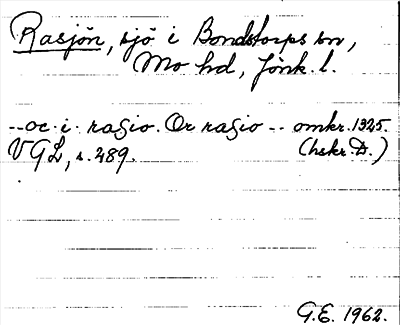 Rasjön, sjö i Bondstorps sn,
Mo hd, Jönk. l.
--oc. i. rasio. Or rasio -- omkr. 1325.
VGL, s. 289. (hskr. D.)
G.E. 1962.